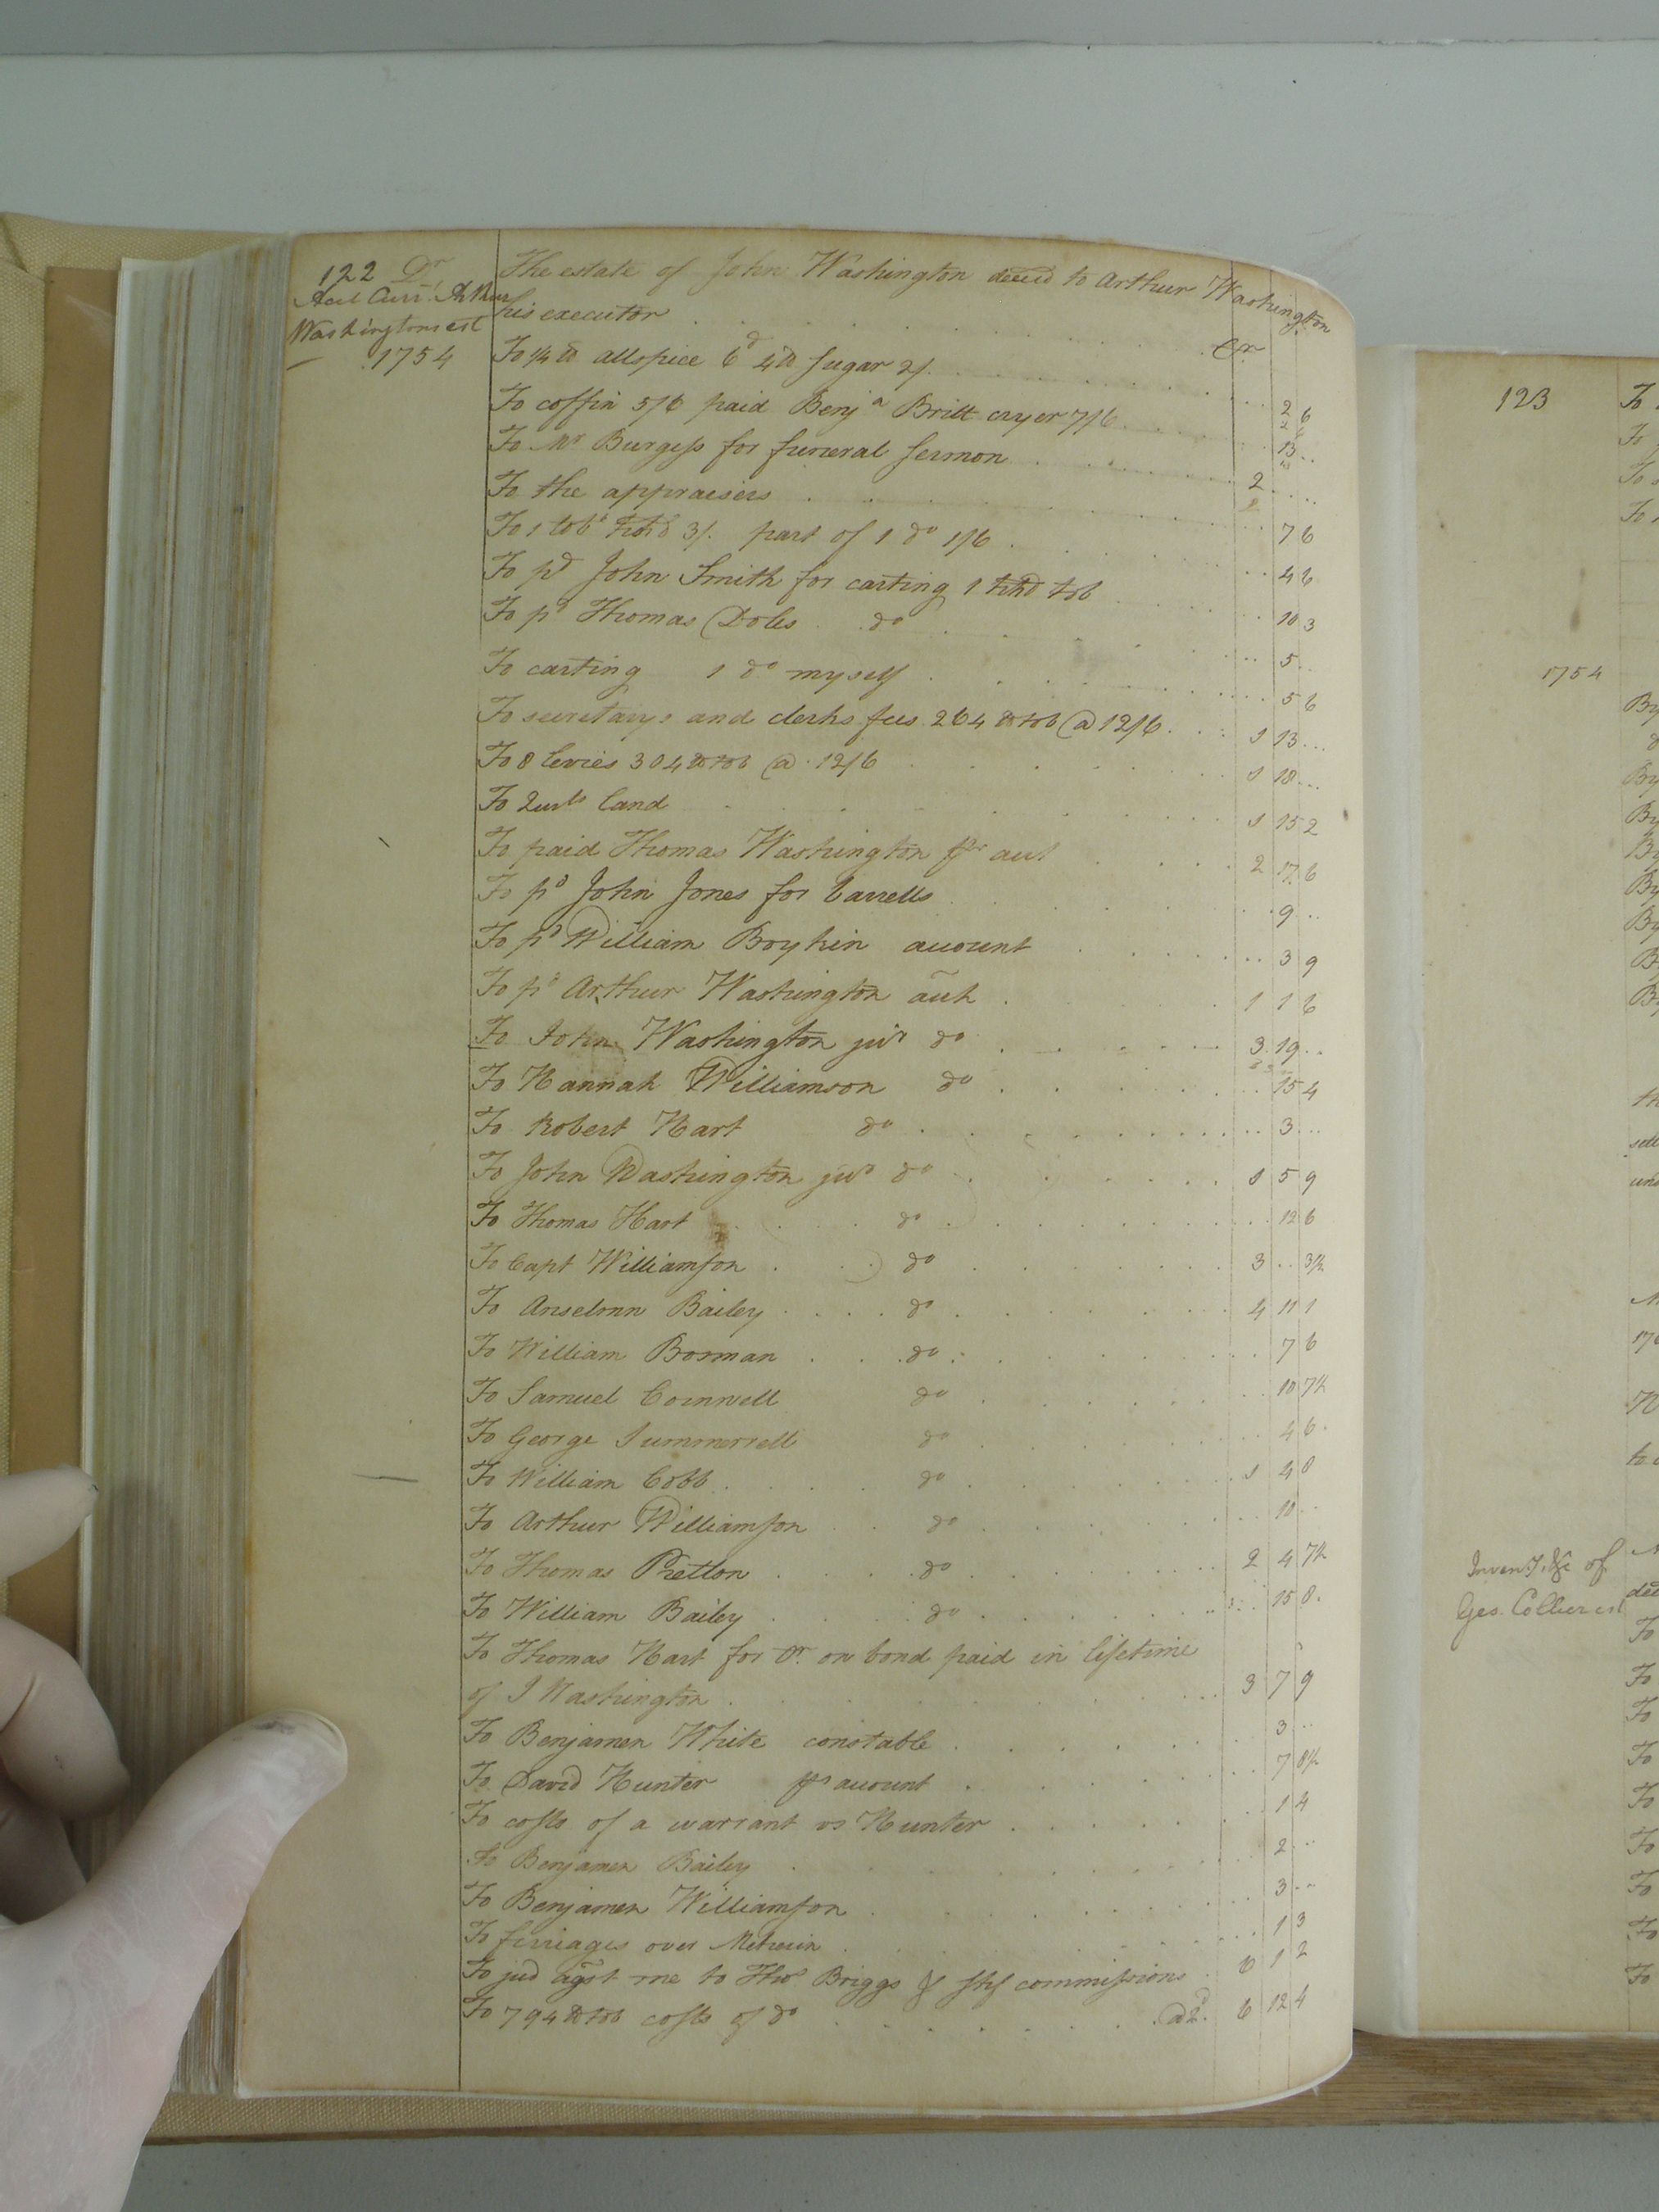 122 Dr
Acct Curr. Arthur
Washingtons est
1754
The estate of John Washington deced to Arthur Washington
his executor Cr
To 1/4 lb allspice 6d 4lb sugar 2/. 2 6
To coffin 5/6 paid Benja Britt cryer 7/6 13
To Mr Burgess for funeral sermon 2
To the appraisers 7 6
To 1 tobo hhd 3/. part of 1 do 1/6 4 6
To pd John Smith for carting 1 hhd tob 10 3
To pd Thomas Doles do 5
To carting 1 do myself 5 6
To secretarys and clerks fees 264 lb tob @ 12/6 1 13
To 8 levies 304 lb tob @ 12/6 1 18
To Quits land 1 15 2
To paid Thomas Washington pr act 2 17 6
To pd John Jones for barrells 9
To pd William Boykin account 3 9
To pd Arthur Washington acct 1 1 6
To John Washington jur do 3 19
To Hannah Williamson do 15 4
To Robert Hart do 3
To John Washington jur do 1 5 9
To Thomas Hart do 12 6
To Capt Williamson do 3 3½
To Anselmn Bailey do 4 11 1
To William Bosman do 7 6
To Samuel Cornwell do 10 7½
To George Summerrell do 4 6
To William Cobb do 1 4 8
To Arthur Williamson do 10
To Thomas Pretlon do 2 4 7½
To William Bailey do 15 8
To Thomas Hart for Cr. on bond paid in lifetime
of J Washington 3 7 9
To Benjamen White constable 3
To David Hunter pr account 7 8½
To costs of a warrant vs Hunter 1 4
To Benjamen Bailey 2
To Benjamen Williamson 3
To ferriages over Meherin 1 3
To jud agst me to Thos Briggs & shf commissions 6 1 2
To 794 lb tob costs of do @ 2d. 6 12 4
123
1754
Invent. &c of
Geo. Collier est